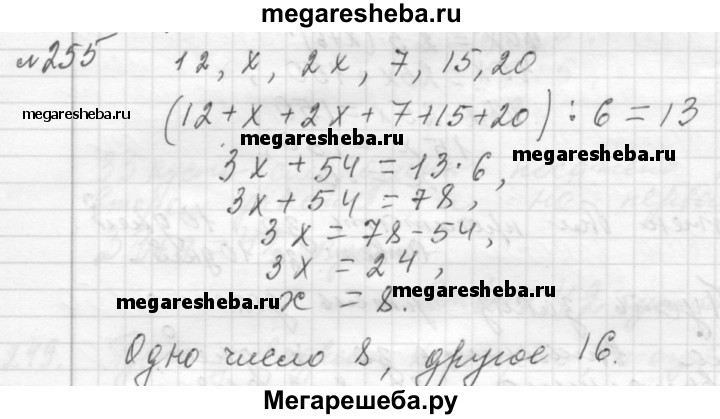 megaresheba.ru
№255 12, x, 2x, 7, 15, 20
megaresheba.ru (12+x+2x+7+15+20) : 6 = 13
megaresheba.ru megaresheba.ru
3x + 54 = 13·6,
3x + 54 = 78,
3x = 78-54,
3x = 24,
megaresheba.ru x = 8. megaresheba.ru
Одно число 8, другое 16.
Мегарешеба.ру